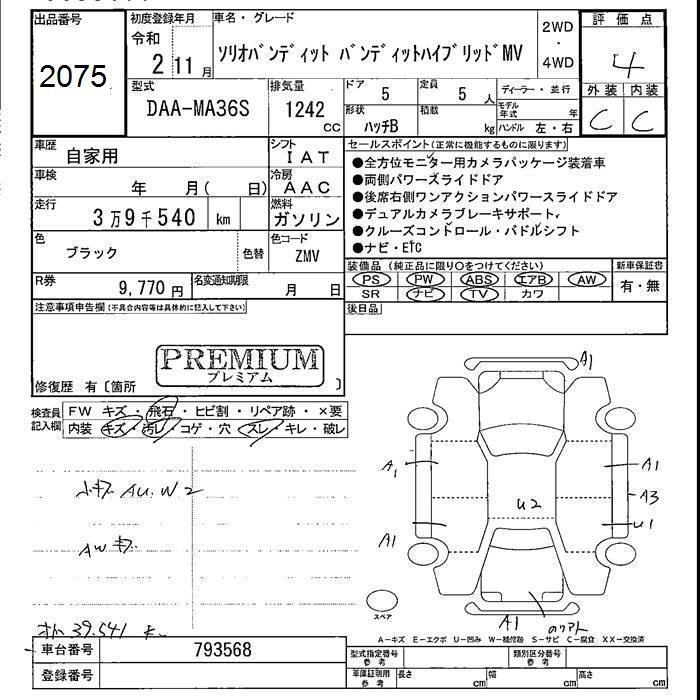 出品番号
2075
初度登録年月
令和
2 11 月
車名・グレード
ソリオバンディット バンディットハイブリッドMV
2WD
・
4WD
評価点
4
外装 内装
C C
型式
DAA-MA36S
排気量
1242
CC
ドア
5
定員
5 人
形状
ハッチB
積載
kg
ディーラー・並行
モデル年式 年
ハンドル 左・右
車歴
自家用
シフト
IAT
車検
年 月( 日)
冷房
AAC
走行
3万9千540 km
燃料
ガソリン
色
ブラック
色替
色コード
ZMV
R券
9,770 円
名変通知期限
月 日
セールスポイント(正常に機能するものに限ります)
●全方位モニター用カメラパッケージ装着車
●両側パワースライドドア
●後席右側ワンアクションパワースライドドア
●デュアルカメラブレーキサポート,
●クルーズコントロール・パドルシフト
●ナビ・ETC
装備品(純正品に限り○をつけてください)
PS PW ABS エアB AW
SR ナビ TV カワ
新車保証書
有・無
後日品
注意事項申告欄(不具合内容等は具体的に記入して下さい)
PREMIUM
プレミアム
修復歴 有〔箇所 〕
検査員記入欄
FW キズ・飛石・ヒビ割・リペア跡・×要
内装 キズ・汚レ・コゲ・穴 スレ・キレ・破レ
小キズ AU.W2
AWキズ
39.541
A1
A1 A1
A3
U2
U1
A1
A1
スペア
A-キズ E-エクボ U-凹み W-補修跡 S-サビ C-腐食 XX-交換済
車台番号
793568
登録番号
型式指定番号
参考
類別区分番号
参考
車庫証明用
参考
長さ cm
幅 cm
高さ cm